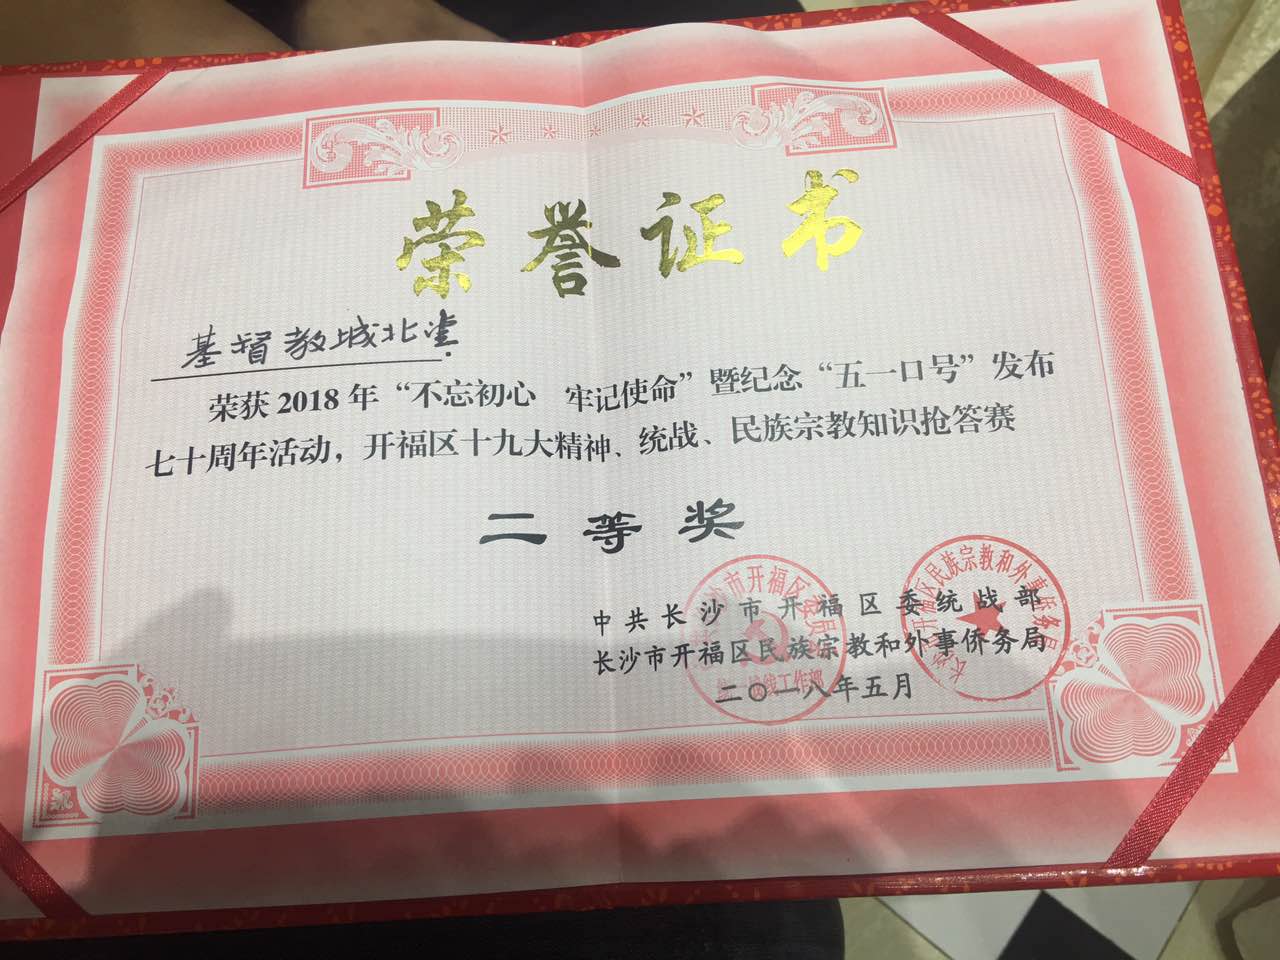 荣誉证书
基督教城北堂
荣获 2018 年“不忘初心 牢记使命”暨纪念“五一口号”发布
七十周年活动，开福区十九大精神、统战、民族宗教知识抢答赛
二等奖
中共长沙市开福区委统战部
长沙市开福区民族宗教和外事侨务局
二〇一八年五月
长沙市开福区民族宗教和外事侨务局